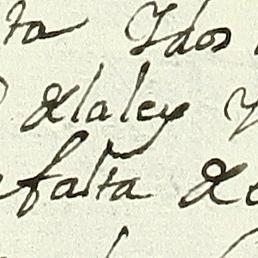 ta Y dos
de la ley y
falta de